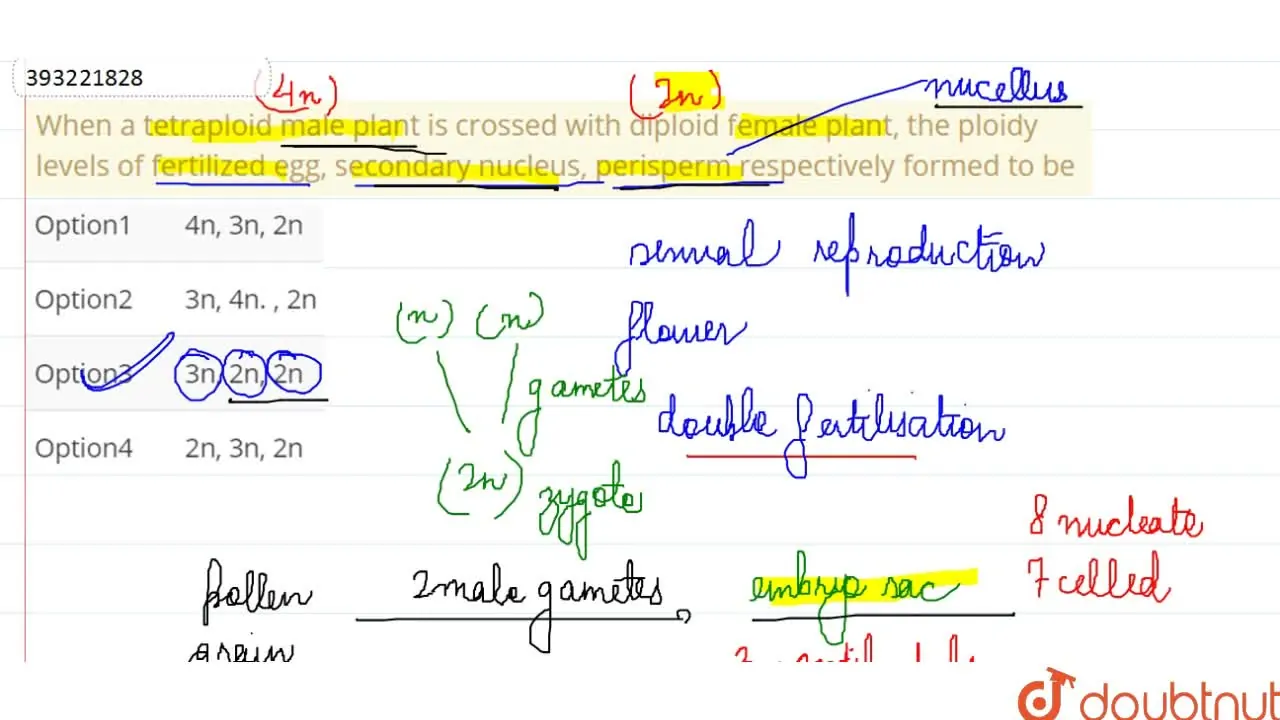 393221828
(4n)
(2n)
nucellus
When a tetraploid male plant is crossed with diploid female plant, the ploidy
levels of fertilized egg, secondary nucleus, perisperm respectively formed to be
Option1 4n, 3n, 2n
sexual reproduction
Option2 3n, 4n. , 2n
(n) (n)
flower
Option3 3n, 2n, 2n
gametes
double fertilisation
Option4 2n, 3n, 2n
(2n) zygote
8 nucleate
pollen 2 male gametes embryo sac 7 celled
grain
doubtnut